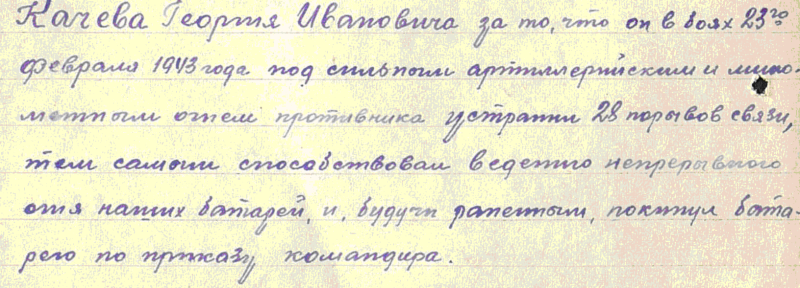 Качева Георгия Ивановича за то, что он в боях 23го
февраля 1943 года под сильным артиллерийским и мино-
метным огнем противника устранил 28 порывов связи,
тем самым способствовал ведению непрерывного
огня наших батарей, и, будучи раненным, покинул бата-
рею по приказу командира.